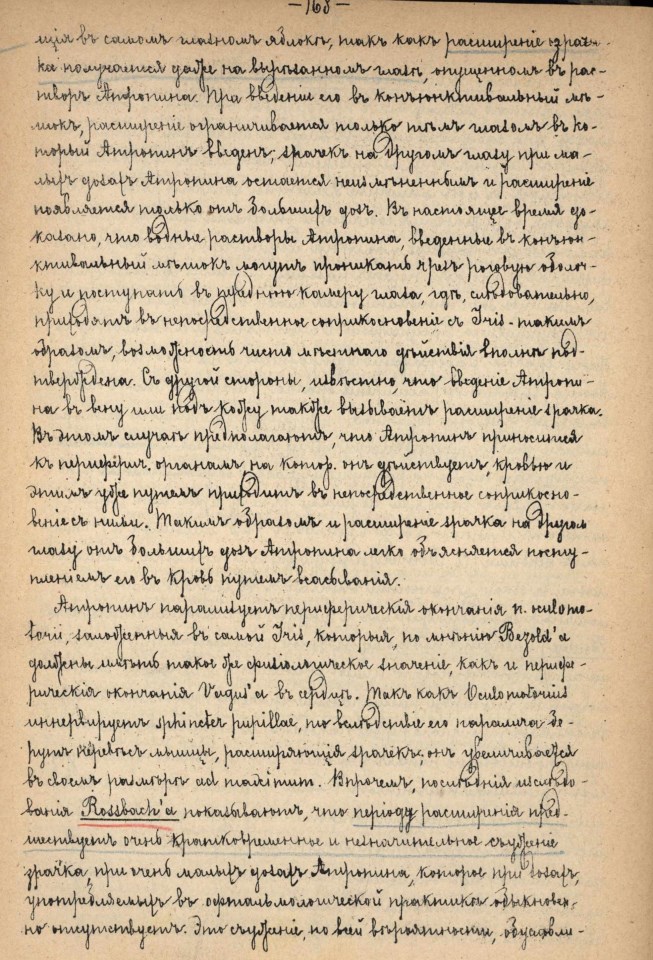 — 168 —
ція въ самомъ глазномъ яблокѣ, такъ какъ расширеніе зрач-
ка получается даже на вырѣзанномъ глазѣ, опущенномъ въ рас-
творъ Атропина. При введеніи его въ конъюнктивальный мѣ-
шокъ, расширеніе ограничивается только тѣмъ глазомъ въ ко-
торый Атропинъ введенъ; зрачекъ на другомъ глазу при ма-
лыхъ дозахъ Атропина остается неизмѣненнымъ и расширеніе
появляется только отъ большихъ дозъ. Въ настоящее время до-
казано, что водные растворы Атропина, введенные въ конъюн-
ктивальный мѣшокъ могутъ проникать чрезъ роговую оболоч-
ку и поступать въ переднюю камеру глаза, гдѣ, слѣдовательно,
приходятъ въ непосредственное соприкосновеніе съ Iris - такимъ
образомъ, возможность чисто мѣстнаго дѣйствія вполнѣ под-
тверждена. Съ другой стороны, извѣстно, что введеніе Атропи-
на въ вену или подъ кожу также вызываетъ расширеніе зрачка.
Въ этомъ случаѣ предполагаютъ, что Атропинъ приносится
къ перифérич. органамъ, на котор. онъ дѣйствуетъ, кровью и
этимъ уже путемъ приходитъ въ непосредственное соприкосно-
веніе съ ними. Такимъ образомъ и расширеніе зрачка на другомъ
глазу отъ большихъ дозъ Атропина легко объясняется посту-
пленіемъ его въ кровь путемъ всасыванія.
Атропинъ парализуетъ периферическія окончанія n. oculomo-
torii, заложенныя въ самой Iris, которыя, по мнѣнію Bezold'a
должны имѣть такое же физіологическое значеніе, какъ и перифе-
рическія окончанія Vagus'a въ сердцѣ. Такъ какъ Oculomotorius
иннервируетъ sphincter pupillae, то вслѣдствіе его паралича бе-
рутъ перевѣсъ мышцы, расширяющія зрачекъ; онъ увеличивается
въ своемъ размѣрѣ ad maximum. Впрочемъ, послѣднія изслѣдо-
ванія Rossbach'a показываютъ, что періоду расширенія пред-
шествуетъ очень кратковременное и незначительное съуженіе
зрачка, при очень малыхъ дозахъ Атропина, которое при дозахъ,
употребляемыхъ въ офтальмологической практикѣ обыкновен-
но отсутствуетъ. Это съуженіе, по всей вѣроятности, обусловли-